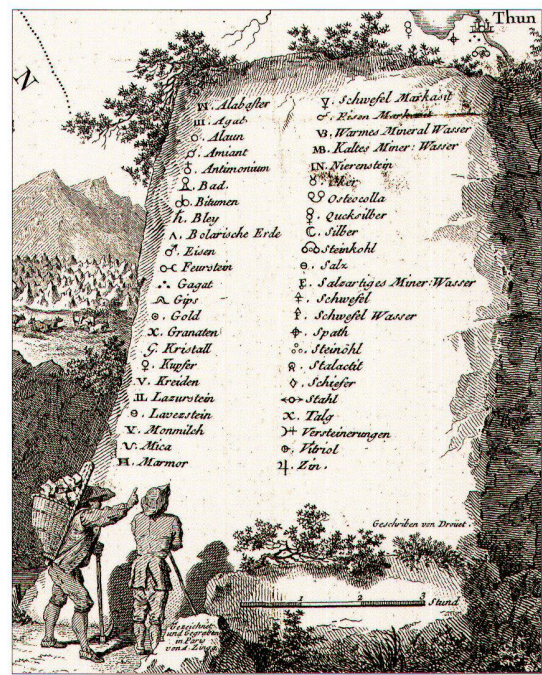 Thun
N
Alabaster
Agat
Alaun
Amiant
Antimonium
Bad.
Bitumen
Bley
Bolarische Erde
Eisen
Feurstein
Gagat
Gips
Gold
Granaten
Kristall
Kupfer
Kreiden
Lazurstein
Lavezstein
Monmilch
Mica
Marmor
Schwefel Markasit
Eisen Markasit
Warmes Mineral Wasser
Kaltes Miner: Wasser
Nierenstein
Oker
Osteocolla
Qucksilber
Silber
Steinkohl
Salz
Salzartiges Miner: Wasser
Schwefel
Schwefel Wasser
Spath
Steinöhl
Stalactit
Schiefer
Stahl
Talg
Versteinerungen
Vitriol
Zin.
Geschriben von Drouet
1 2 3 Stund
Gezeichnet
und Gegraben
in Paris
von A. Zingg